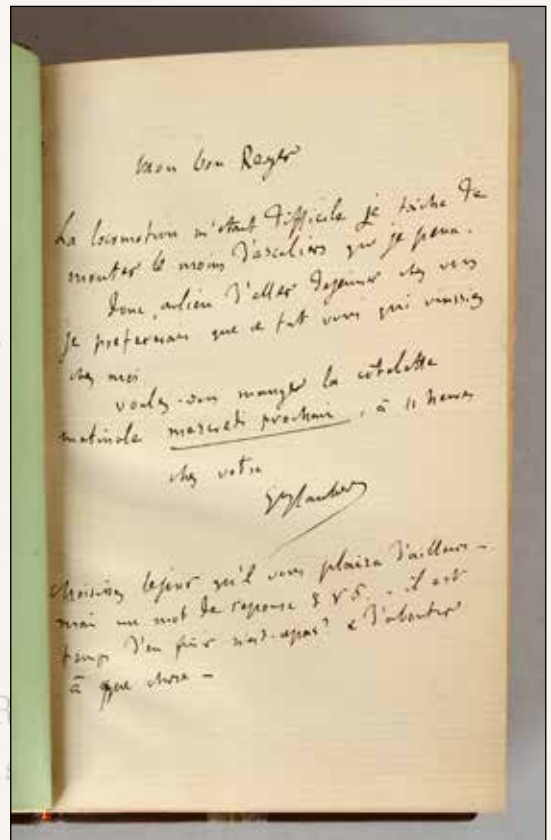 Mon bon Reyer
La locomotion m'étant difficile je tâche de
monter le moins d'escaliers que je peux.
Donc, aulieu d'aller dejeuner chez vous
je prefererais que ce fut vous qui vinssiez
chez moi
voulez-vous manger la côtelette
matinale mercredi prochain, à 11 heures
chez votre
GFlaubert
choisissez le jour qu'il vous plaira d'ailleurs –
mais un mot de reponse s v p. – il est
temps d'en finir & d'aboutir
à qque chose –